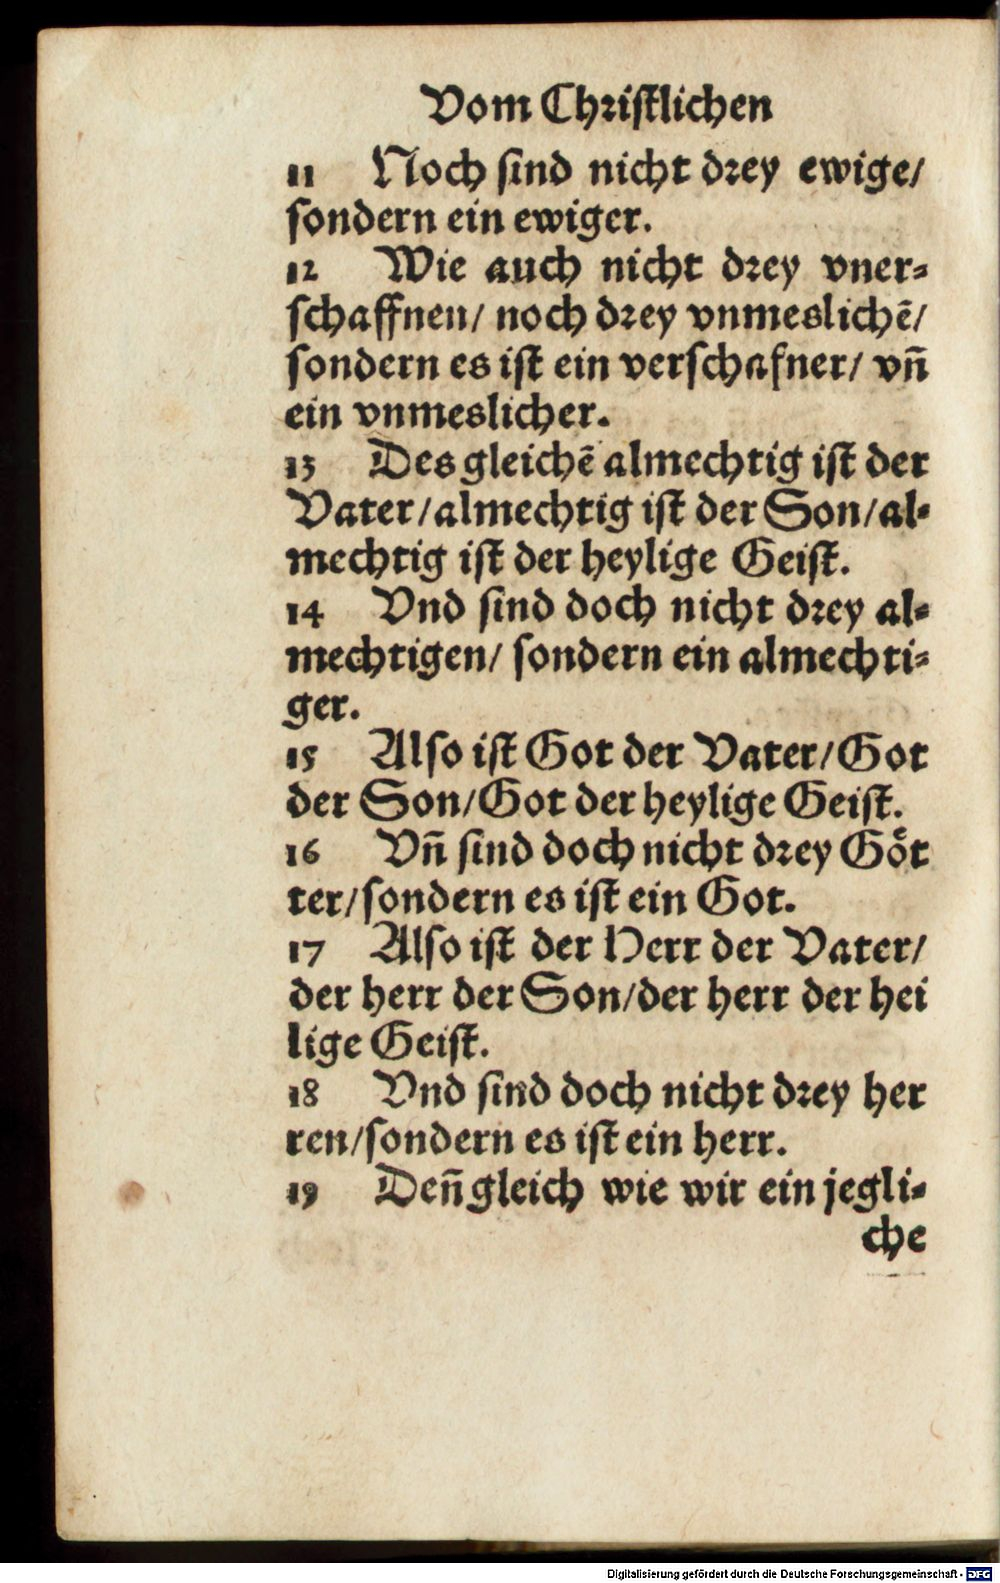 Vom Christlichen
11 Noch sind nicht drey ewige/
sondern ein ewiger.
12 Wie auch nicht drey vner-
schaffnen/ noch drey vnmeslichē/
sondern es ist ein verschafner/ vn̄
ein vnmeslicher.
13 Des gleichē almechtig ist der
Vater/almechtig ist der Son/al-
mechtig ist der heylige Geist.
14 Vnd sind doch nicht drey al-
mechtigen/ sondern ein almechti-
ger.
15 Also ist Got der Vater/Got
der Son/Got der heylige Geist.
16 Vn̄ sind doch nicht drey Goͤt
ter/sondern es ist ein Got.
17 Also ist der Herr der Vater/
der herr der Son/der herr der hei
lige Geist.
18 Vnd sind doch nicht drey her
ren/sondern es ist ein herr.
19 Den̄ gleich wie wir ein jegli-
che
Digitalisierung gefördert durch die Deutsche Forschungsgemeinschaft - DFG